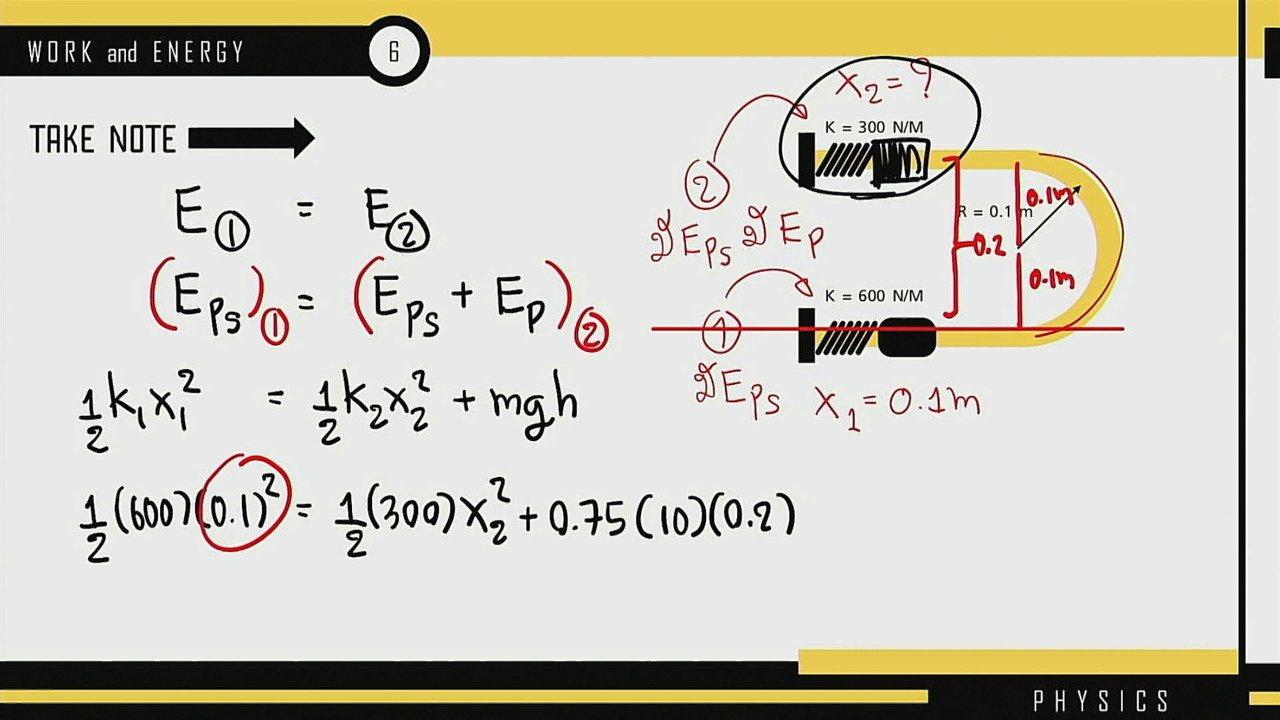 WORK and ENERGY 6
TAKE NOTE
E① = E②
(Eps)① = (Eps + Ep)②
½k₁x₁² = ½k₂x₂² + mgh
½(600)(0.1)² = ½(300)x₂² + 0.75(10)(0.2)
x₂ = ?
K = 300 N/M
②
มี Eps มี Ep
0.1m
R = 0.1 m
0.2
0.1m
K = 600 N/M
①
มี Eps x₁ = 0.1m
PHYSICS